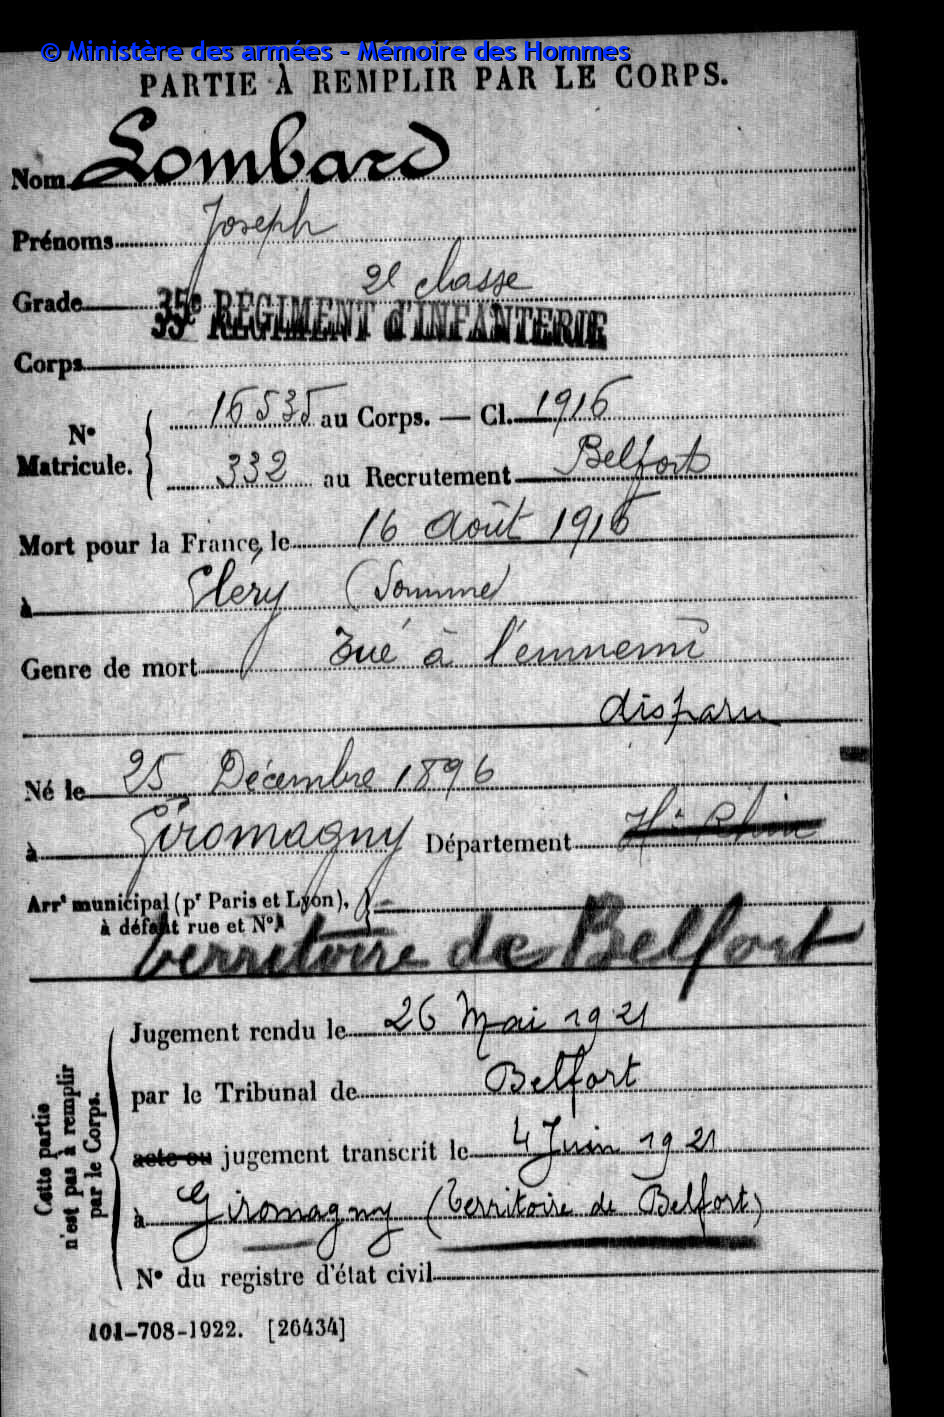 © Ministère des armées - Mémoire des Hommes
PARTIE À REMPLIR PAR LE CORPS.
Nom Lombard
Prénoms Joseph
Grade 2e classe
35e RÉGIMENT d'INFANTERIE
Corps
N° Matricule. 16535 au Corps. — Cl. 1916
332 au Recrutement Belfort
Mort pour la France, le 16 Août 1916
à Cléry (Somme)
Genre de mort Tué à l'ennemi
disparu
Né le 25 Décembre 1896
à Giromagny Département Ht Rhin
Arrt municipal (pr Paris et Lyon),
à défaut rue et N°.
territoire de Belfort
Cette partie n'est pas à remplir par le Corps.
Jugement rendu le 26 Mai 1921
par le Tribunal de Belfort
acte ou jugement transcrit le 4 Juin 1921
à Giromagny (Territoire de Belfort)
N° du registre d'état civil
101-708-1922. [26434]